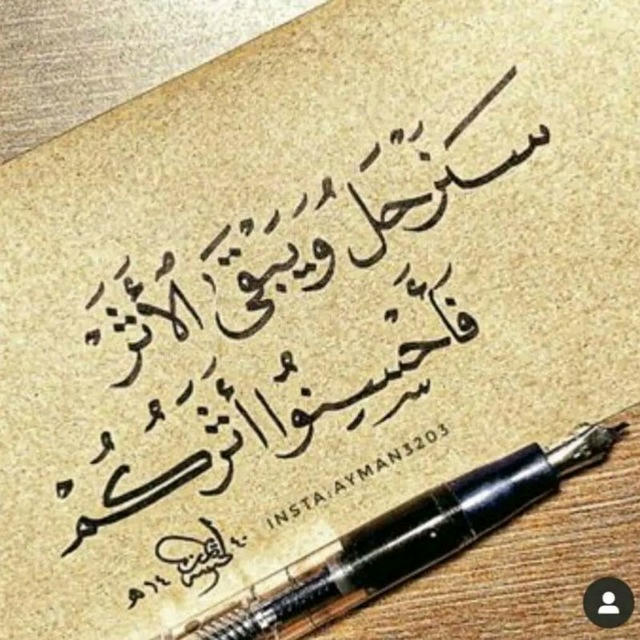 سَنَرْحَلُ وَيَبْقَى الأَثَرْ
فَأَحْسِنُوا أَثَرَكُمْ
INSTA:AYMAN3203